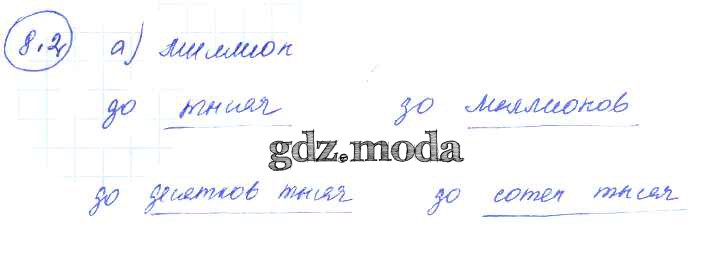 8.2. а) миллион
до тысяч до миллионов
gdz.moda
до десятков тысяч до сотен тысяч